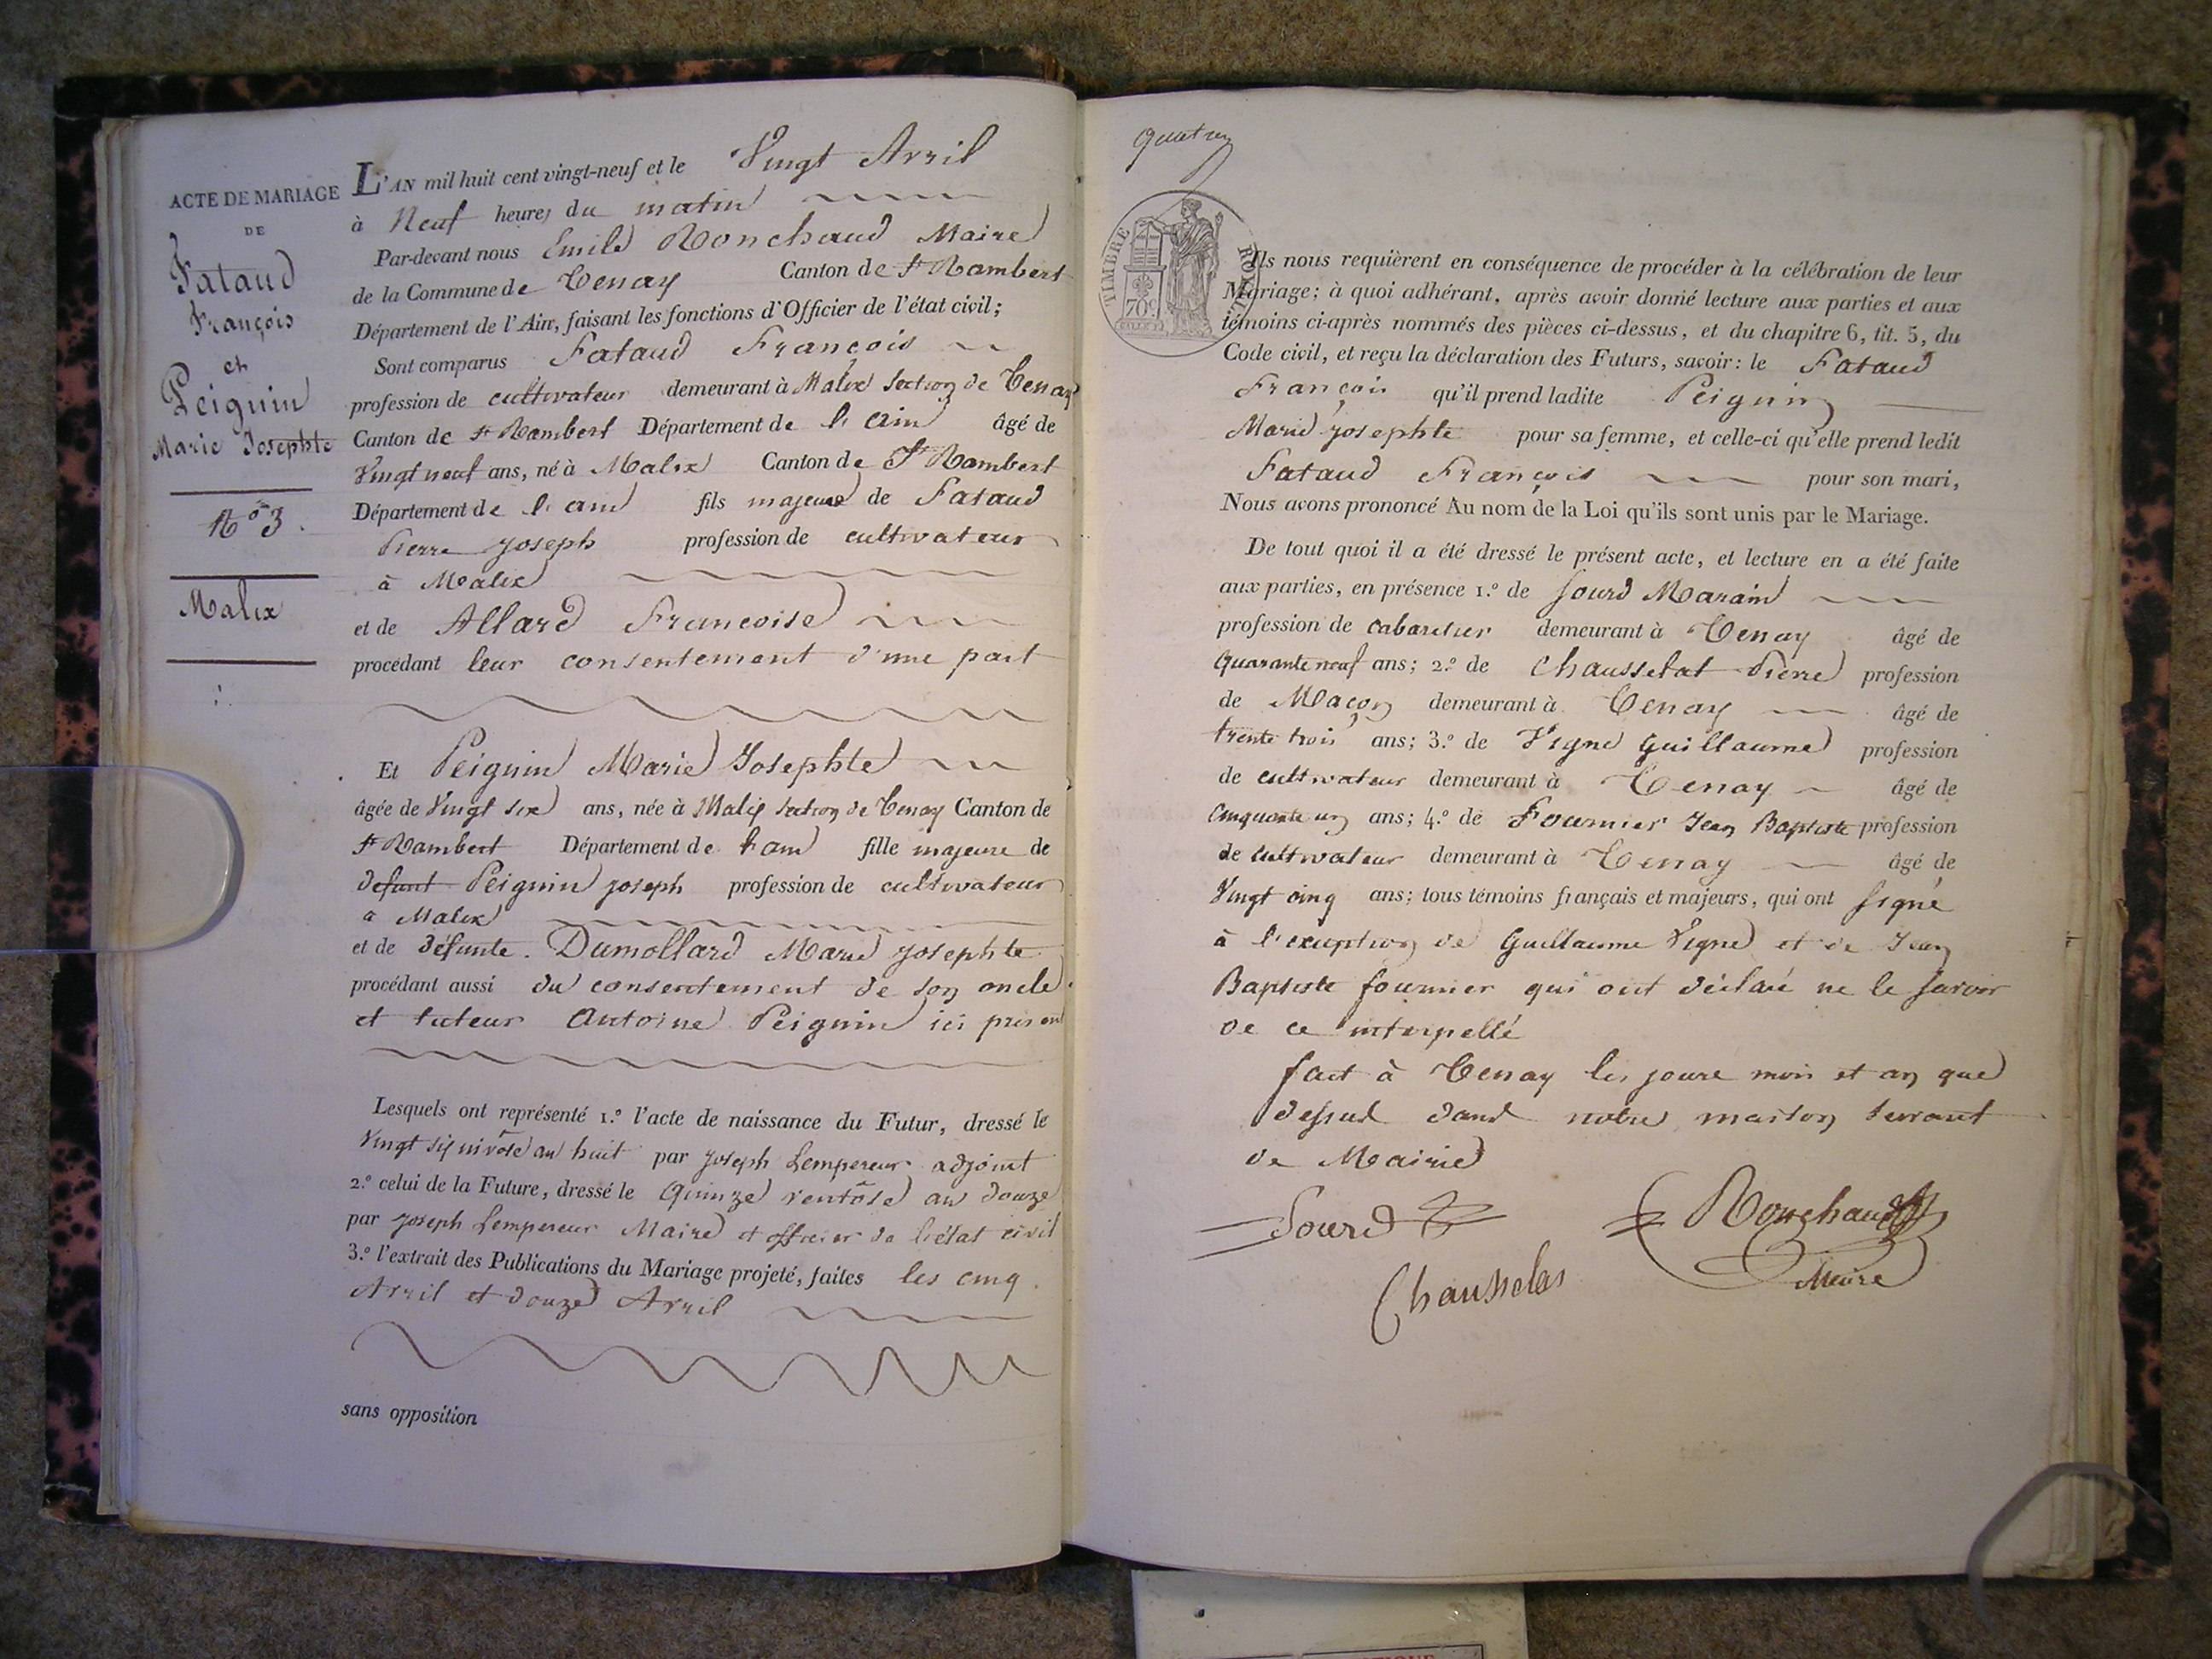 ACTE DE MARIAGE
DE
Fataud
François
et
Peiguin
Marie Josephte
No 3.
Malix
L'AN mil huit cent vingt-neuf et le Vingt Avril
à Neuf heures du matin
Par-devant nous Emile Ronchaud Maire
de la Commune de Tenay Canton de St Rambert
Département de l'Ain, faisant les fonctions d'Officier de l'état civil;
Sont comparus Fataud François
profession de cultivateur demeurant à Malix section de Tenay
Canton de St Rambert Département de l'ain âgé de
Vingt neuf ans, né à Malix Canton de St Rambert
Département de l'ain fils majeur de Fataud
Pierre joseph profession de cultivateur
à Malix
et de Allard Francoise
procédant leur consentement d'une part
Et Peiguin Marie Josephte
âgée de Vingt six ans, née à Malix section de Tenay Canton de
St Rambert Département de l'ain fille majeure de
defunt Peiguin joseph profession de cultivateur
a Malix
et de défunte. Dumollard Marie josephte
procédant aussi du consentement de son oncle
et tuteur Antoine Peiguin ici présent
Lesquels ont représenté 1.º l'acte de naissance du Futur, dressé le
Vingt six nivôse an huit par joseph Lempereur adjoint
2.º celui de la Future, dressé le Quinze ventôse an douze
par joseph Lempereur Maire et officier de l'état civil
3.º l'extrait des Publications du Mariage projeté, faites les cinq
Avril et douze Avril
sans opposition
TIMBRE ROYAL
70c
Ils nous requièrent en conséquence de procéder à la célébration de leur
Mariage; à quoi adhérant, après avoir donné lecture aux parties et aux
témoins ci-après nommés des pièces ci-dessus, et du chapitre 6, tit. 5, du
Code civil, et reçu la déclaration des Futurs, savoir: le Fataud
François qu'il prend ladite Peiguin
Marie josephte pour sa femme, et celle-ci qu'elle prend ledit
Fataud François pour son mari,
Nous avons prononcé Au nom de la Loi qu'ils sont unis par le Mariage.
De tout quoi il a été dressé le présent acte, et lecture en a été faite
aux parties, en présence 1.º de Sourd Marain
profession de cabaretier demeurant à Tenay âgé de
Quarante neuf ans; 2.º de Chausselat Pierre profession
de Maçon demeurant à Tenay âgé de
trente trois ans; 3.º de Vigne Guillaume profession
de cultivateur demeurant à Tenay âgé de
Cinquante un ans; 4.º de Fournier Jean Baptiste profession
de cultivateur demeurant à Tenay âgé de
Vingt cinq ans; tous témoins français et majeurs, qui ont signé
à l'exception de Guillaume Vigne et de Jean
Baptiste fournier qui ont déclaré ne le savoir
de ce interpellé
fait à Tenay les jours mois et an que
dessus dans notre maison servant
de Mairie
Sourd
Ronchaud
Maire
Chausselas